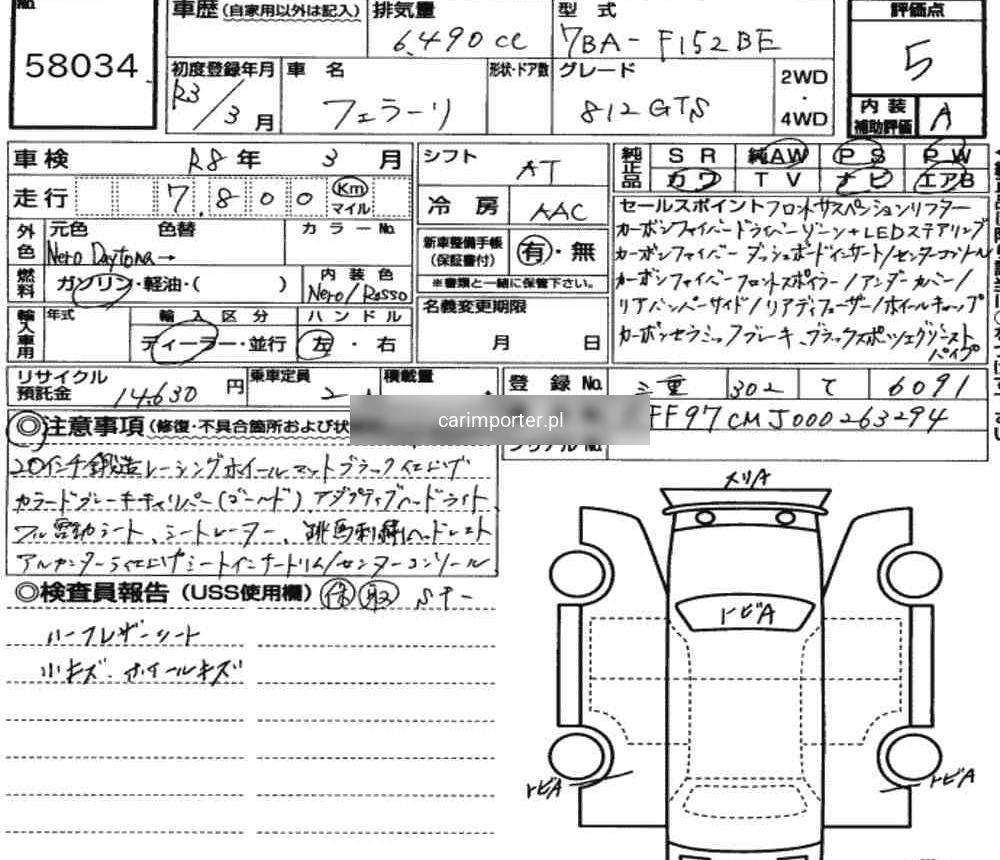 No.
58034
車歴 (自家用以外は記入)
排気量
6,490 cc
型式
7BA-F152BE
評価点
5
初度登録年月
R3/3月
車名
フェラーリ
形状・ドア数
グレード
812 GTS
2WD
・
4WD
内装
補助評価
A
車検 R8年 3月
走行 7,800 Km マイル
外色
元色 色替
Nero Daytona→
カラーNo.
燃料
ガソリン・軽油・( )
内装色
Nero/Rosso
輸入車用
年式
輸入区分
ディーラー・並行
ハンドル
左・右
シフト AT
冷房 AAC
新車整備手帳
(保証書付)
有・無
※書類と一緒に保管下さい。
名義変更期限
月 日
純正品
SR 純AW PS PW
カワ TV ナビ エアB
セールスポイント フロントサスペンションリフター
カーボンファイバードライバーゾーン+LEDステアリング
カーボンファイバー ダッシュボードインサート/センターコントロール
カーボンファイバー フロントスポイラー/アンダーカバー/
リアバンパーサイド/リアディフューザー/ホイールキャップ
カーボンセラミックブレーキ、ブラックスポーツエグゾースト
パイプ
リサイクル
預託金
14,630円
乗車定員
2人
積載量
登録No.
三重 302 て 6091
FF97CMJ000263294
carimporter.pl
◎注意事項 (修復・不具合箇所および状
20インチ鍛造レーシングホイールマットブラック仕上げ
カラードブレーキキャリパー(ゴールド)、アダプティブヘッドライト
フル電動シート、シートヒーター、跳馬刺繍ヘッドレスト
アルカンターラ仕上げシートインサートトリム/センターコンソール
◎検査員報告 (USS使用欄) 保 取 Sナ-
ハーフレザーシート
小キズ、ホイールキズ
メリA
トビA
トビA
トビA